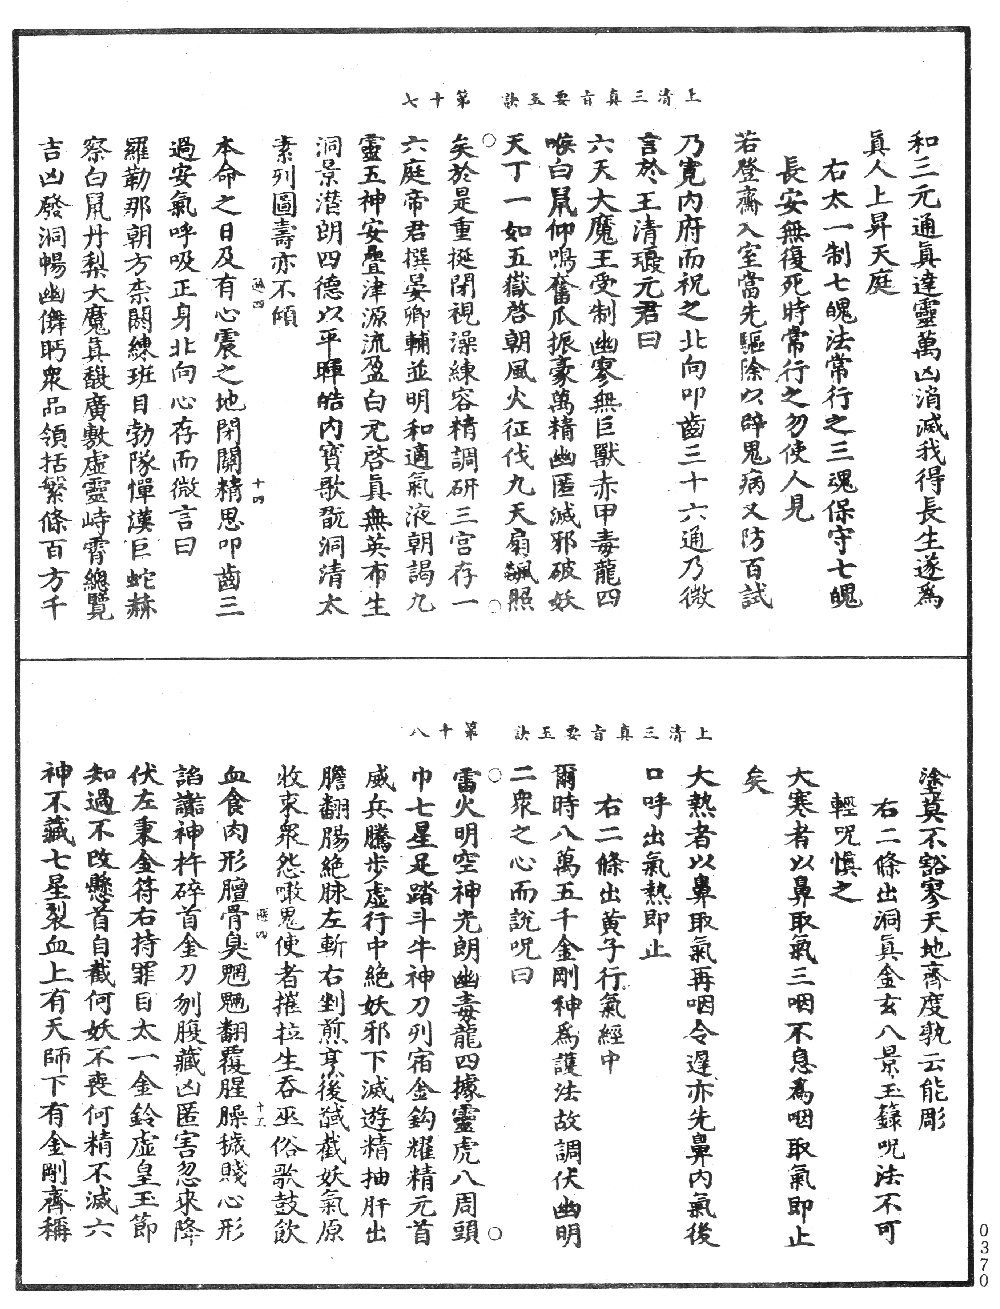 上清三真旨要玉訣　第十七
和三元通眞達靈萬凶消滅我得長生遂爲
眞人上昇天庭
右太一制七魄法常行之三魂保守七魄
長安無復死時常行之勿使人見
若登齋入室當先驅除以辟鬼病又防百試
乃寛内府而祝之北向叩齒三十六通乃微
言於王清琅元君曰
六天大魔王受制幽寥無巨獸赤甲毒龍四
喉白鼠仰鳴奮爪振豪萬精幽匿滅邪破妖
天丁一如五嶽啓朝風火征伐九天扇飆照
矣於是重挺閉視澡練容精調研三宮存一
六庭帝君撰晏卿輔並明和適氣液朝謁九
靈五神安疊津源流盈白元啓眞無英布生
洞景潜朗四德以平暉皓内寳歌翫洞清太
素列圖壽亦不傾
十四
本命之日及有心震之地閉關精思叩齒三
過安氣呼吸正身北向心存而微言曰
羅勒那朝方柰閼練班目勃隊憚漢巨蛇赫
察白鼠丹梨大魔眞馥廣敷虛靈峙霄總覽
吉凶廢洞暢幽儛眄衆品領括繁條百方千
上清三真旨要玉訣　第十八
塗莫不豁寥天地齊度孰云能彫
右二條出洞眞金玄八景玉籙呪法不可
輕呪愼之
大寒者以鼻取氣三咽不息爲咽取氣即止
矣
大熱者以鼻取氣再咽令遲亦先鼻内氣後
口呼出氣熱即止
右二條出黄子行氣經中
爾時八萬五千金剛神爲護法故調伏幽明
二衆之心而說呪曰
雷火明空神光朗幽毒龍四據靈虎八周頭
巾七星足踏斗牛神刀列宿金鈎耀精元首
威兵騰步虚行中絶妖邪下滅遊精抽肝出
膽翻腸絶脉左斬右剉煎烹後截妖氣原
收束衆怨噉鬼使者摧拉生吞巫俗歌鼓飲
血食肉形膻骨臭魍魎翻覆腥臊穢賤心形
諂讟神杵碎首金刀刎腹藏凶匿害忽來降
伏左秉金符右持罪目太一金鈴虛皇玉節
知過不改懸首自截何妖不喪何精不滅六
神不藏七星裂血上有天師下有金剛齊稱
0370